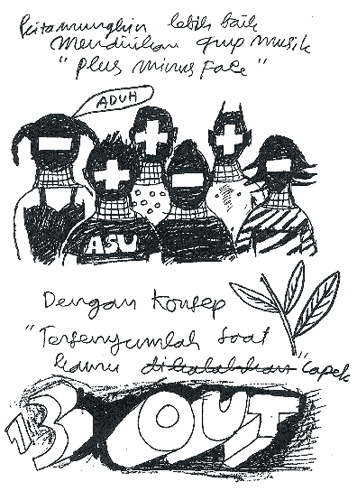 Kita mungkin lebih baik
mendirikan grup musik
"plus minus face"
ADUH
ASU
Dengan Konsep
"Tersenyumlah saat
kamu dikalahkan" capek
13 OUT